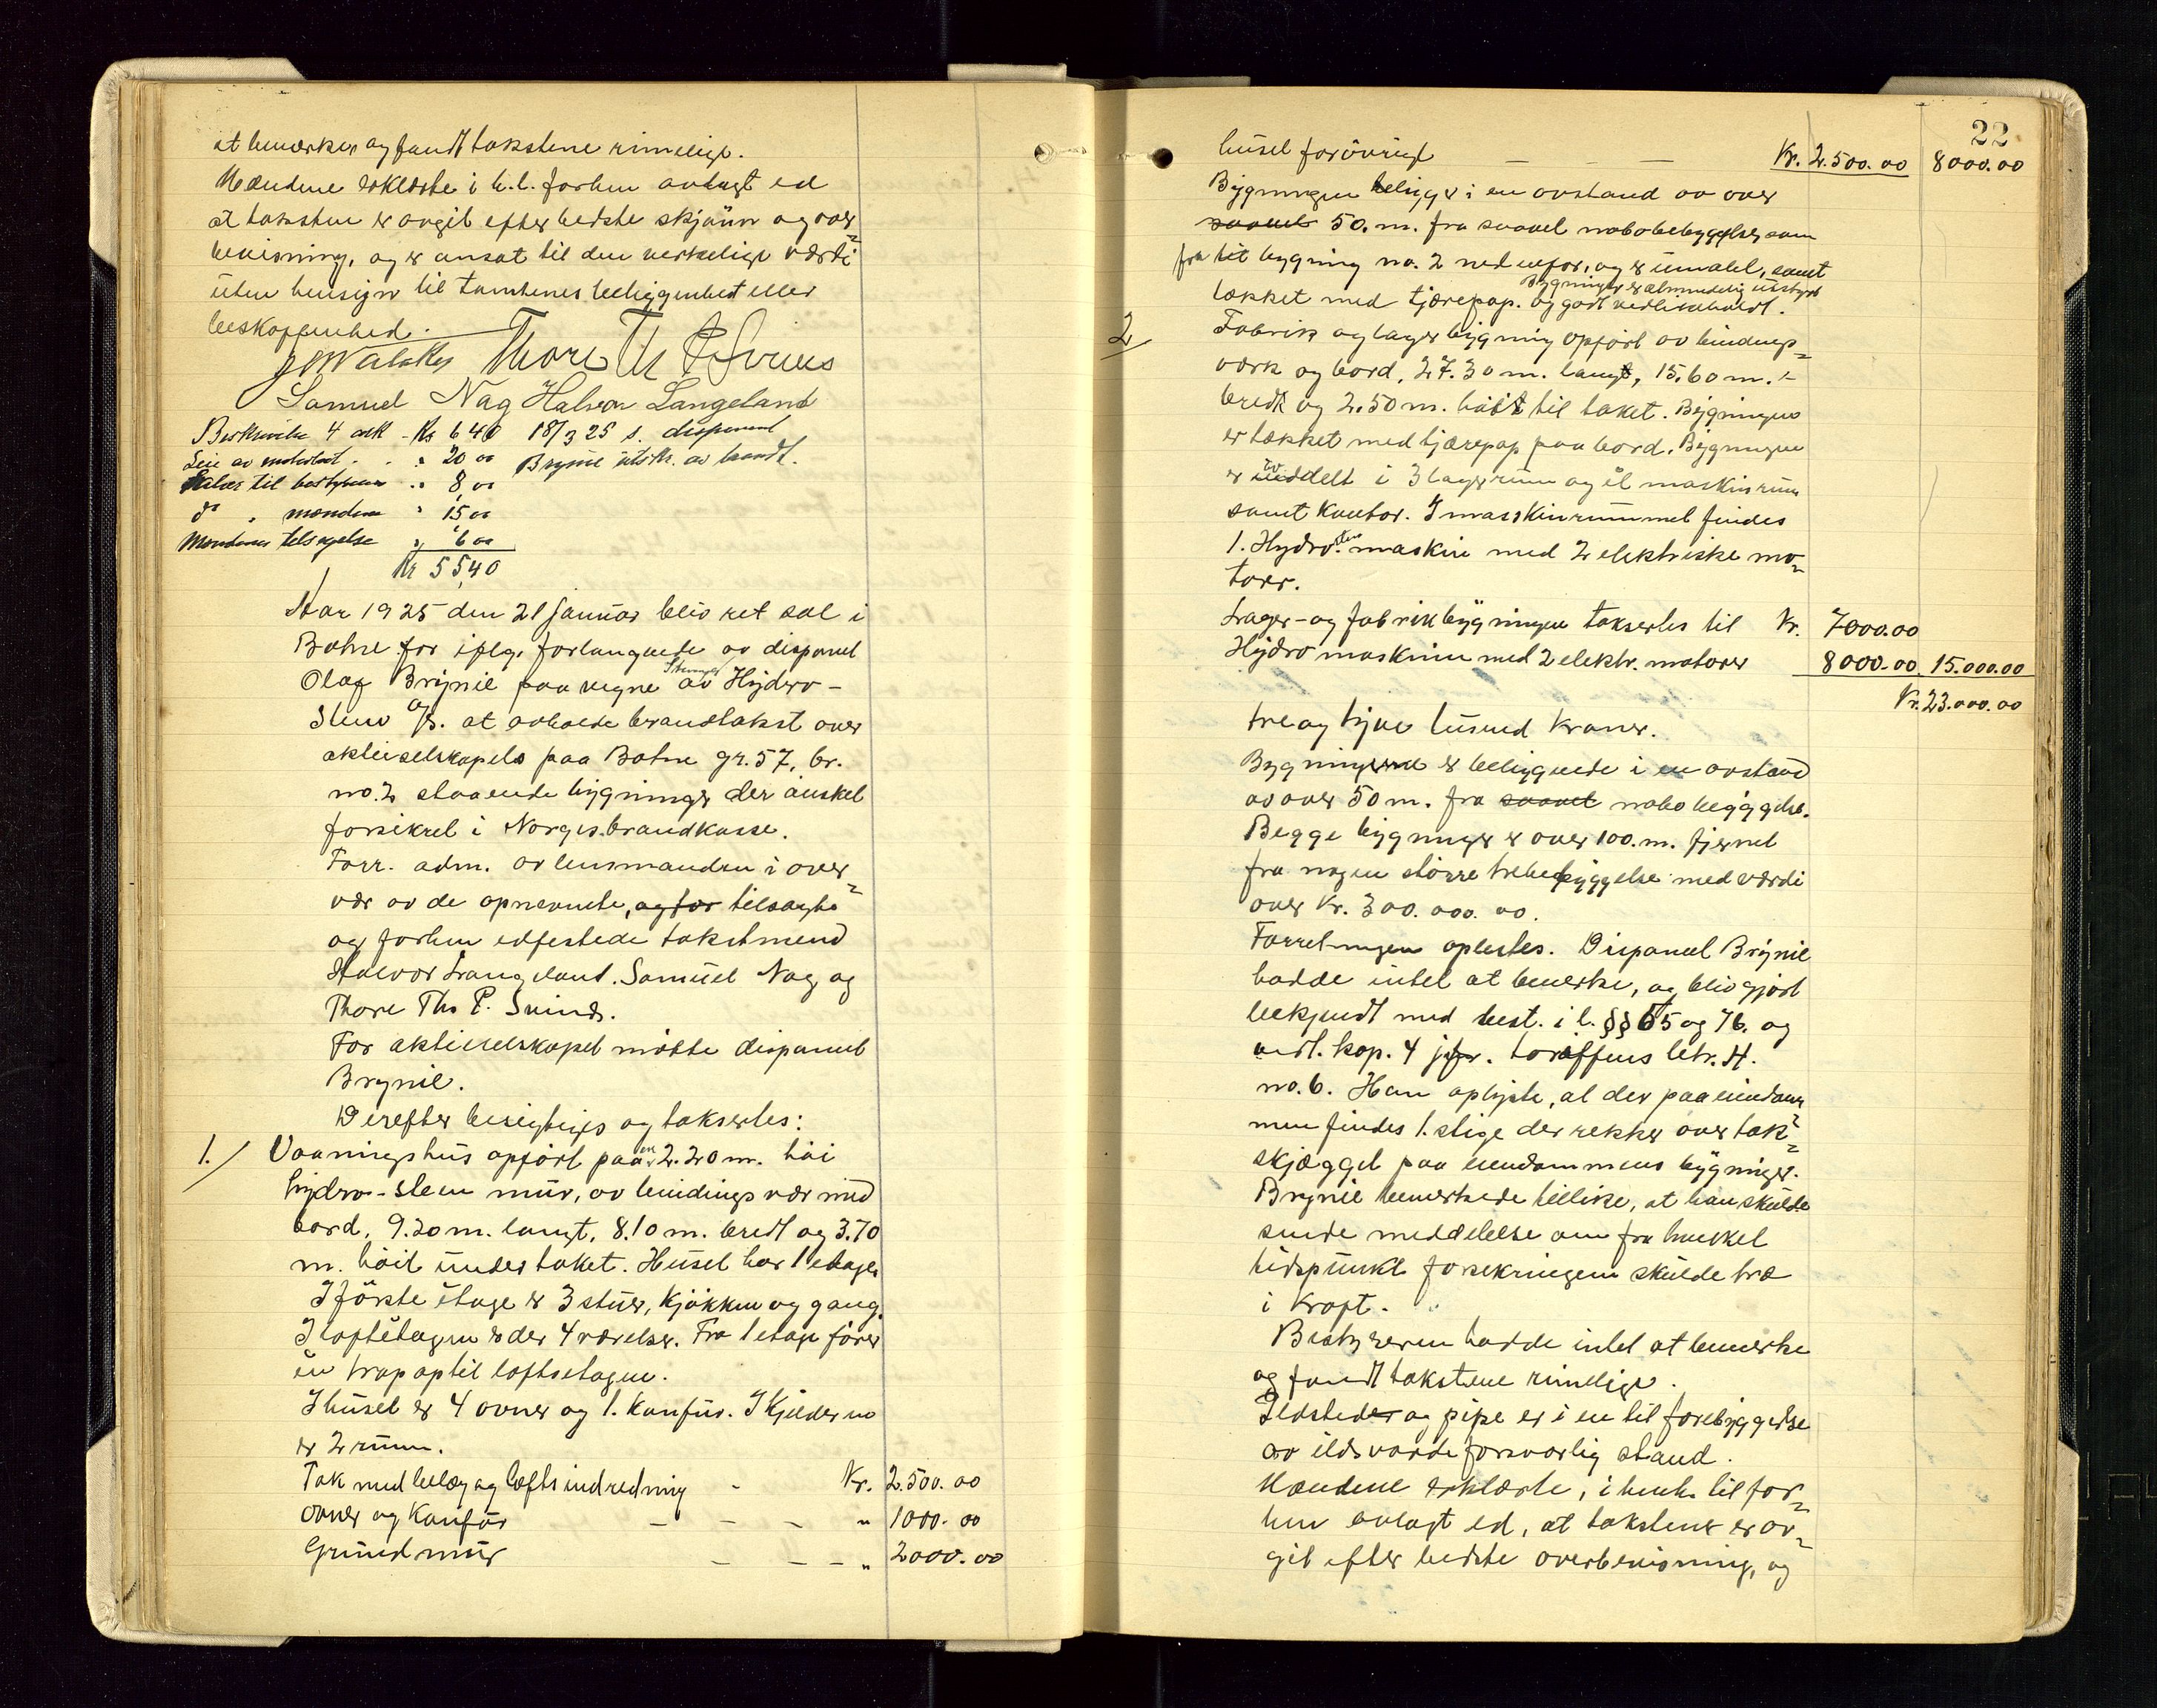 at bemerke og fandt takstene rimelige.
Mændene erklærte i h.t. forhen avlagt ed
at taksten er avgit efter bedste skjönn og over
bevisning, og er ansat til den verkelige værdi
uten hensyn til tomtenes beliggenhet eller
beskaffenhed.
Thore Th P Svines
Samuel Nag Halvor Langeland
Beskrivelse 4 ark - Kr 6 40 18/3 25 s. disponent
Leie av motorbaat . . " 20 00 Brynie utskr. av brandt.
Salær til bestyreren .. " 8,00
do " mændene " 15 00
Mændenes tilsigelse " 6 00
Kr 55,40
Aar 1925 den 21 januar blev ret sat i
Botne for ifølge forlangende av disponent
Olaf Brynie paa vegne av Stavanger Hydro-
Sten A/S. at avholde brandtakst over
aktieselskapets paa Botne gr. 57, br.
no. 2 staaende bygninger der önskes
forsikret i Norges brandkasse.
Forr. adm. av lensmanden i over-
vær av de opnevnte, og for tilsagte
og forhen edfestede takstmend
Halvor Langeland. Samuel Nag, og
Thore Ths P. Svines.
For aktieselskapet mötte disponent
Brynie.
Derefter besigtiges og taksertes:
1. Vaaningshus opfört paa en 2.20 m. höi
hydro-sten mur, av bindingsvær med
bord, 9.20 m. langt, 8.10 m. bredt og 3.70
m. höit under taket. Huset har 1 etage
I förste etage er 3 stuer, kjökken og gang.
I loftetagen er der 4 værelser. Fra 1 etage förer
en trap op til loftsetagen.
I huset er 4 ovner og 1. komfur. I kjelderen
er 2 rum.
Tak med belæg og loftsindredning - Kr. 2.500.00
ovner og komfur - - - " 1000.00
Grundmur - - - " 2000.00
22
huset forövrigt - - - Kr. 2.500.00 8000.00
Bygningen beligger i en avstand av over
saavel 50. m. fra saavel nabobebyggelse som
fra til bygning no. 2 nedenfor, og er umalet, samt
Bygningen er almindelig utstyrt
tækket med tjærepap. og godt vedlikeholdt.
2 Fabrik og lagerbygning opfört av bindings-
værk og bord, 27.30 m. langt, 15.60 m.
bredt og 2.50 m. höit til taket. Bygningen
er tækket med tjærepap paa bord. Bygningen
er inddelt i 3 lagerrum og et maskinrum
samt kontor. I masskinrummet findes
1. Hydro-sten maskin med 2 elektriske mo-
torer.
Lager- og fabrikbygningen taksertes til Kr. 7000.00
Hydro maskinen med 2 elektr. motorer 8000.00 15.000.00
Kr. 23.000.00
tre og tjue tusend kroner.
Bygningerne er beliggende i en avstand
av over 50 m. fra saavel nabo begyggelse.
Begge bygninger er over 100. m. fjernet
fra nogen större trebebyggelse med værdi
over Kr. 300.000.00.
Forretningen oplestes. Disponent Brynie
hadde intet at bemerke, og blev gjort
bekjendt med best. i l. §§ 65 og 76. og
vedt. kap. 4 jfr. tariffens litr. H.
no. 6. Han oplyste, at der paa eiendom-
men findes 1. stige der rekker over tak-
skjægget paa eiendommens bygninger.
Brynie bemerkede tillike, at han skulde
sende meddelelse om fra hvilket
tidspunkt forsekringen skulde træ
i kraft.
Bestyreren hadde intet at bemerke
og fandt takstene rimelige.
Ildsteder og pipe er i en til forebyggelse
av ildsvaade forsvarlig stand.
Mændene erklærte, i henh. til for-
hen avlagt ed, at takstene er av-
git efter bedste overbevisning, og